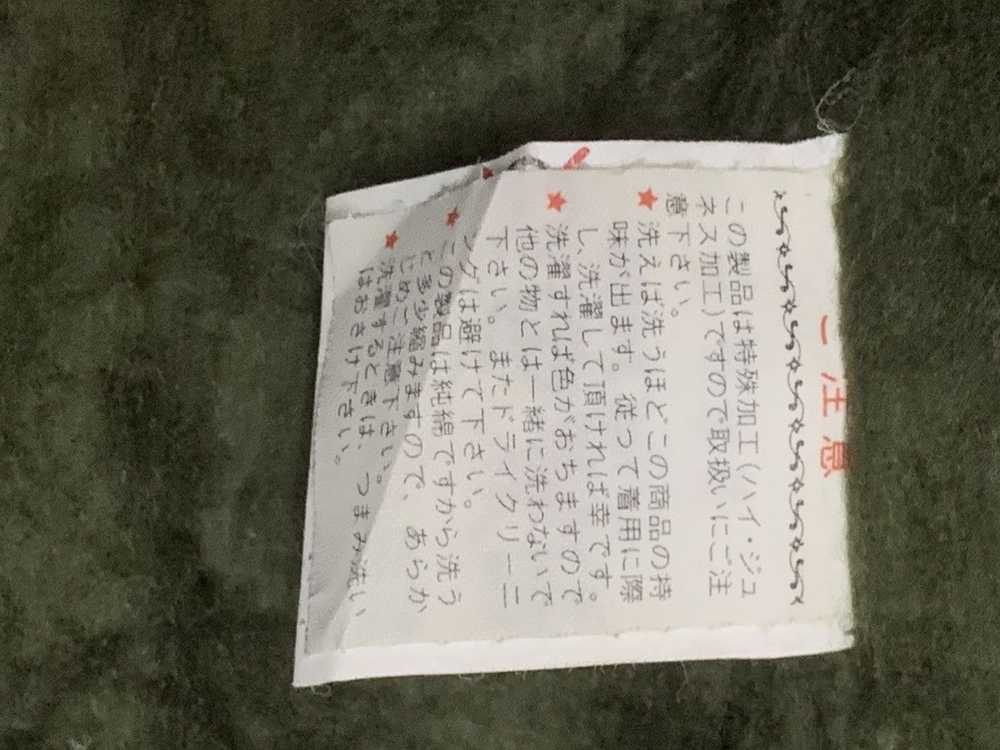 ご注意
この製品は特殊加工(ハイ・ジュ
ネス加工)ですので取扱いにご注
意下さい。
★洗えば洗うほどこの商品の持
味が出ます。従って着用に際
し、洗濯して頂ければ幸です。
★洗濯すれば色がおちますので
他の物とは一緒に洗わないで
下さい。またドライクリーニ
ングは避けて下さい。
★この製品は純綿ですから洗う
と多少縮みますので、あらか
じめご注意下さい。
★洗濯するときは、つまみ洗い
はおさけ下さい。